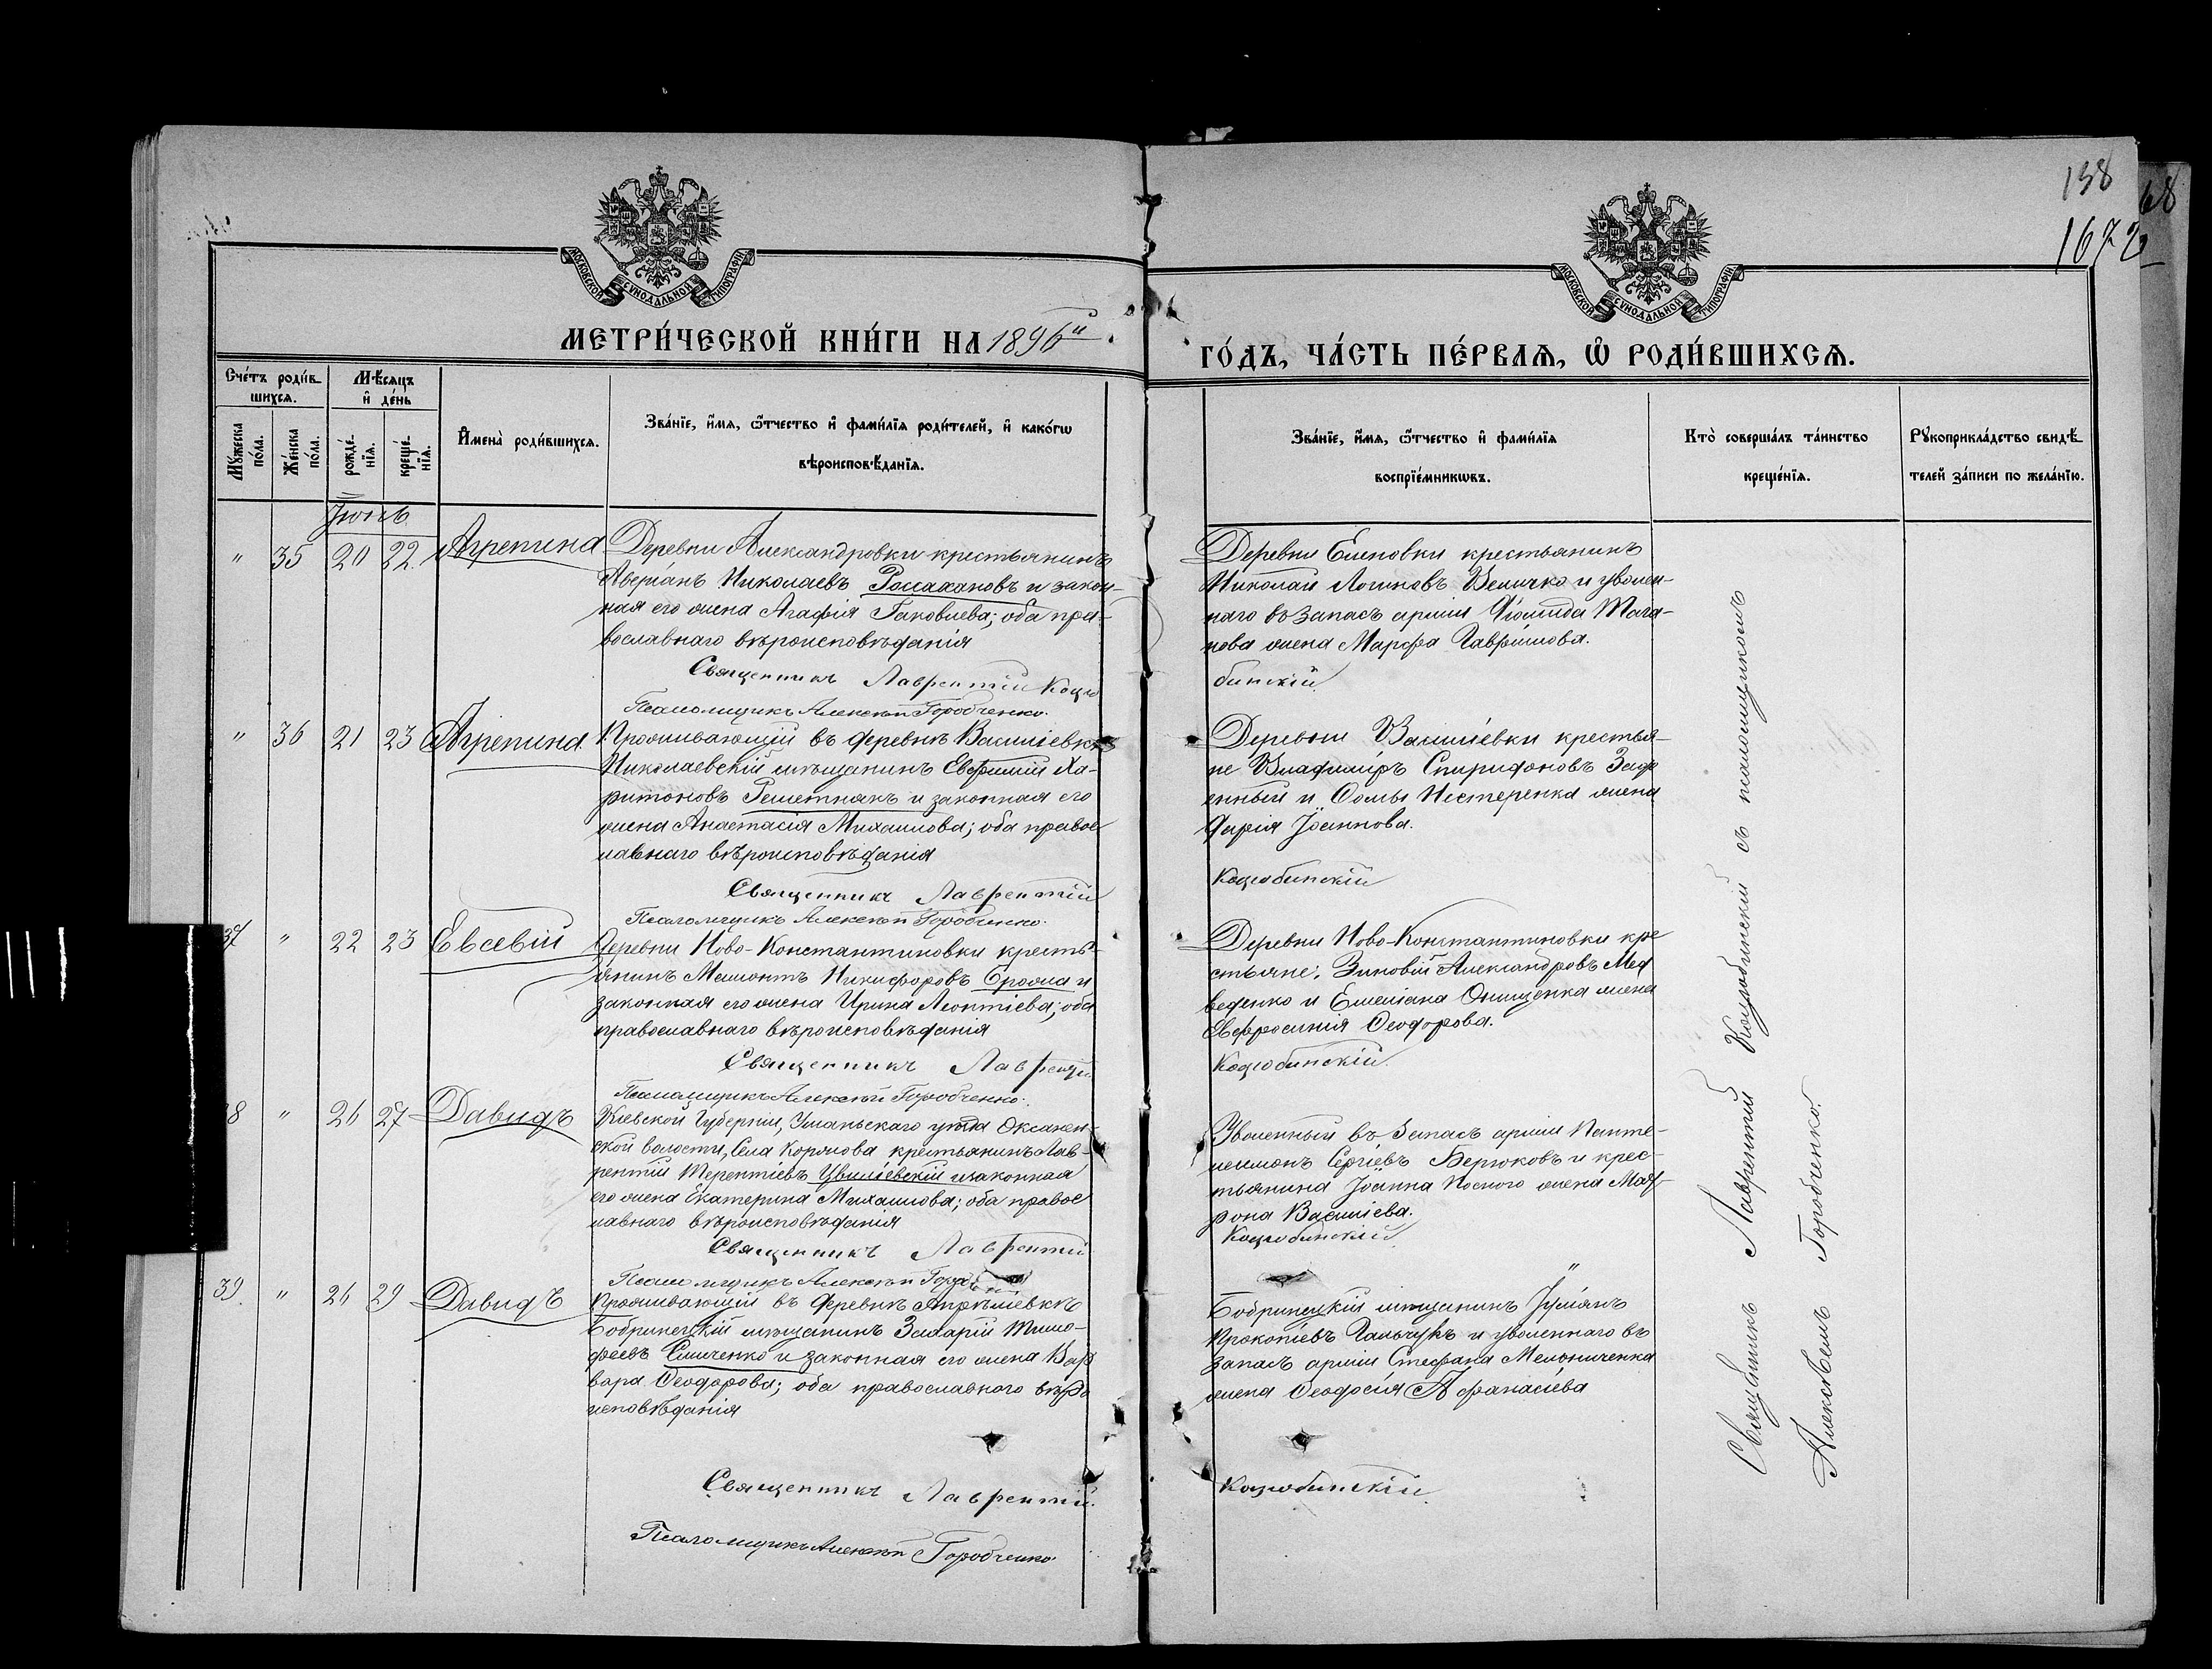 138
68
1672
МОСКОВСКОЙ СѴНОДАЛЬНОЙ ТИПОГРАФІИ
МОСКОВСКОЙ СѴНОДАЛЬНОЙ ТИПОГРАФІИ
МЕТРИ́ЧЕСКОЙ КНИ́ГИ НА 1896й
ГО́ДЪ, ЧА́СТЬ ПЕ́РВАѦ, Ѡ҆ РОДИ́ВШИХСѦ.
Сче́тъ роди́в-
шихсѧ.
Мꙋ́жеска по́ла.
Же́нска по́ла.
Мѣ́сѧцъ и҆ де́нь
рожде́-нїѧ.
креще́-нїѧ.
И҆мена̀ роди́вшихсѧ.
Зва́нїе, и҆́мѧ, ѻ҆́тчество и҆ фами́лїѧ роди́телей, и҆ како́гѡ
вѣроисповѣ́данїѧ.
Зва́нїе, и҆́мѧ, ѻ҆́тчество и҆ фами́лїѧ
воспрїе́мникѡвъ.
Кто̀ соверша́лъ та́инство
креще́нїѧ.
Рꙋкоприкла́дство свидѣ́-
телей за́писи по жела́нїю.
Іюнь
" 35 20 22 Агрепина
Деревни Александровки крестьянинъ
Аверіанъ Николаевъ и закон-
ная его жена Агафія Іаковлева; оба пра-
вославнаго вѣроисповѣданія
Священникъ Лаврентій Коцю
Псаломщикъ Алексѣй Городченко.
Деревни Еленовки крестьянинъ
Николай Логиновъ Величко и уволен-
наго въ запасъ арміи
нова жена Марфа Гаврилова.
бинскій
" 36 21 23 Агрепина
Проживающій въ деревнѣ Василіевкѣ
Николаевскій мѣщанинъ Евфимій Ха-
ритоновъ Решетнякъ и законная его
жена Анастасія Михаилова; оба правос
лавнаго вѣроисповѣданія
Священникъ Лаврентій
Псаломщикъ Алексѣй Городченко.
Деревни Василіевки крестья-
не Владиміръ Спиридоновъ
и Ѳомы Нестеренка жена
Дарія Іоаннова.
Коцюбинскій
37 " 22 23 Евсевій
Деревни Ново-Константиновки кресть-
янинъ Никифоровъ и
законная его жена Ирина Леонтіева; оба
православнаго вѣроисповѣданія
Священникъ Лаврентій
Псаломщикъ Алексѣй Городченко.
Деревни Ново-Константиновки кре
стьяне: Зиновій Александровъ Мед
веденко и Емеліана Онищенка жена
Евфросинія Ѳеодорова.
Коцюбинскій
38 " 26 27 Давидъ
Кіевской Губерніи, Уманьскаго уѣзда Оксанен-
ской волости, Села крестьянинъ Лав-
рентій Терентіевъ Цвиліевскій и законная
его жена Екатерина Михаилова; оба правос
лавнаго вѣроисповѣданія
Священникъ Лаврентій
Псаломщикъ Алексѣй
Уволенный въ запасъ арміи Панте-
леимонъ Сергіевъ Берюковъ и крес-
тьянина Іоанна Носного жена Мат-
рона Василіева.
Коцюбинскій
39 " 26 29 Давидъ
Проживающій въ деревнѣ
Бобринецкій мѣщанинъ Захарій Тимо-
феевъ и законная его жена Вар
вара Ѳеодорова; оба православного вѣро
исповѣданія
Священникъ Лаврентій
Псаломщикъ Алексѣй Городченко.
Бобринецкій мѣщанинъ Іуліанъ
Прокопіевъ Гальчукъ и уволеннаго въ
запасъ арміи Стефана Мельниченка
жена Ѳеодосія Афанасіева
Коцюбинскій
Священникъ Лаврентій Коцюбинскій съ псаломщикомъ
Алексѣемъ Городченко.